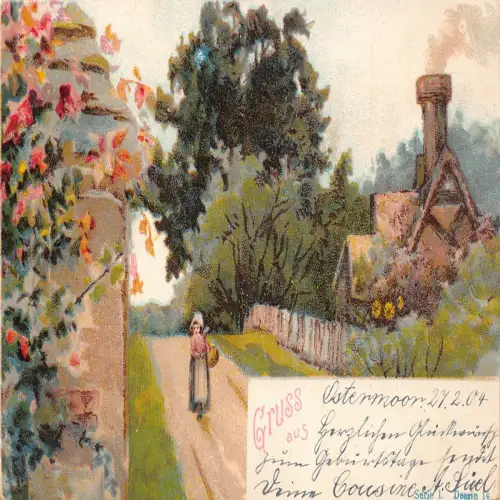 Gruss aus
Ostermoor 27.2.04
Herzlichen Glückwunsch
zum Geburtstage sendet
Deine Cousine A.
Serie 1.